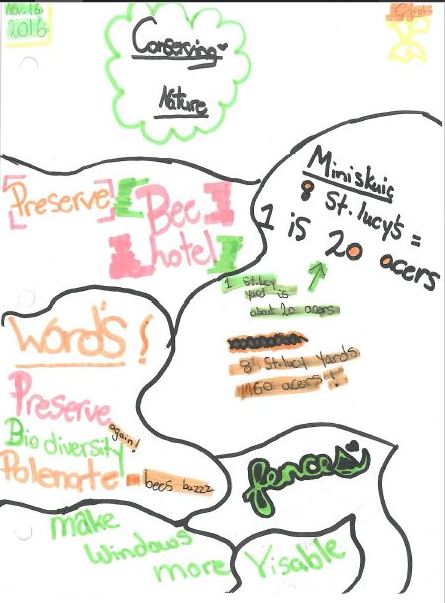 Nov. 16
2016
Conserving
Nature
Preserve
Bee
hotel
Miniskuic
8 St. lucy's =
1 is 20 acers
1 St. lucy
yard is
about 20 acers
8 St. lucy yards
160 acers!
Words!
Preserve
again!
Biodiversity
Polenate - bees buzzz
fences
make
windows
more Visable